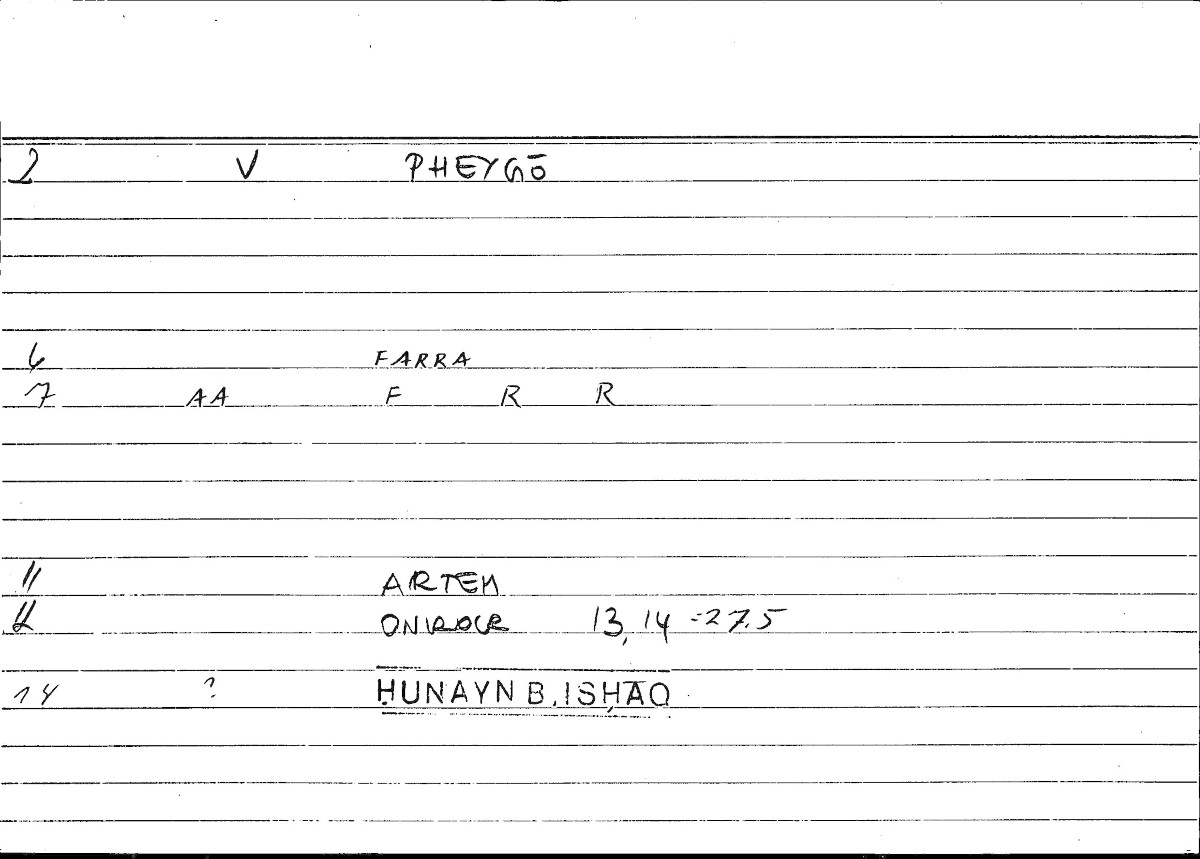 2 V PHEYGŌ
6 FARRA
7 AA F R R
11 ARTEM
12 ONIROCR 13,14 =27.5
14 ? ḤUNAYN B. ISḤĀQ